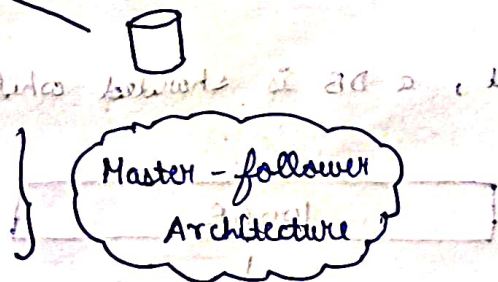 Master - follower
Architecture